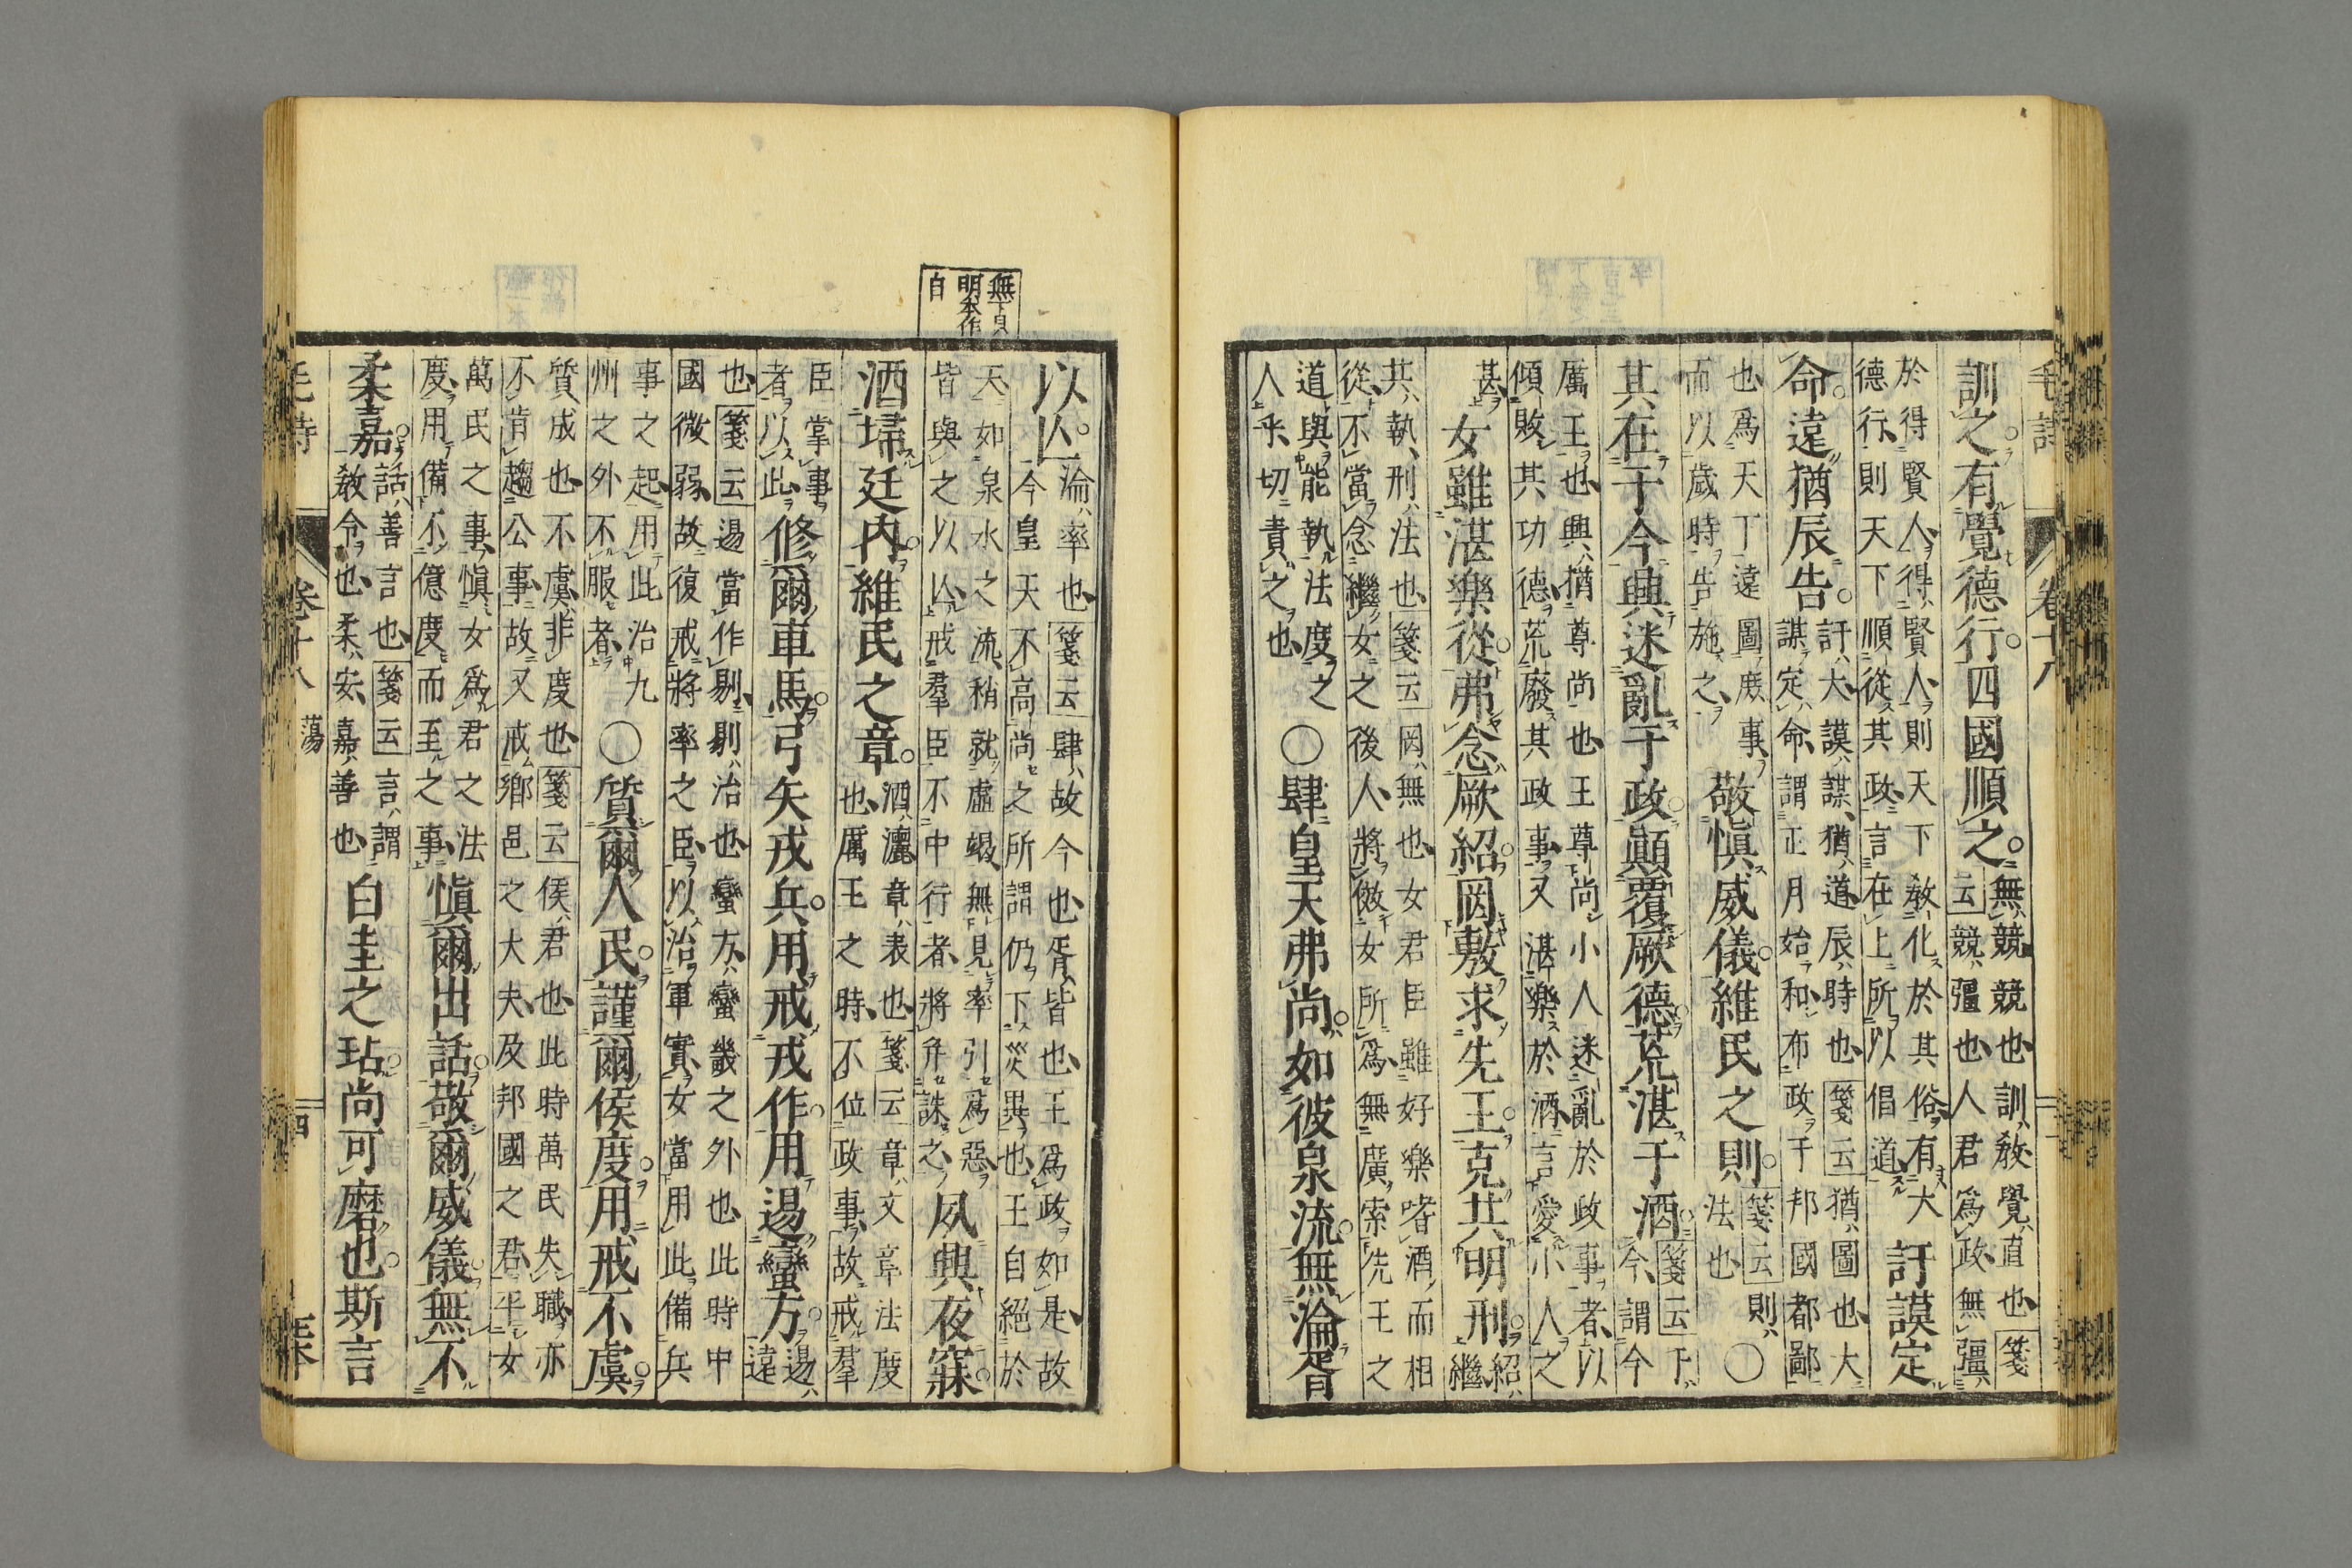 毛詩 卷十八
訓之有覺德行四國順之無競競也訓教覺直也箋
云競彊也人君爲政無彊
於得賢人得賢人則天下教化於其俗有大
德行則天下順從其政言在上所以倡道訏謨定
命遠猶辰告訏大謨謀猶道辰時也箋云猶圖也大
謀定命謂正月始和布政于邦國都鄙
也爲天下遠圖庶事
而以歲時告施之敬慎威儀維民之則箋云則
法也○
其在于今興迷亂于政顛覆厥德荒湛于酒箋云于
今謂今
厲王也興猶尊尚也王尊尚小人迷亂於政事者以
傾敗其功德荒廢其政事又湛樂於酒言愛小人之
甚女雖湛樂從弗念厥紹罔敷求先王克共明刑紹
繼
共執刑法也箋云罔無也女君臣雖好樂嗜酒而相
從不當念繼女之後人將傚女所爲無廣索先王之
道與能執法度之
人乎切責之也○肆皇天弗尚如彼泉流無淪胥
無下見
明本作
自
以亾淪率也箋云肆故今也胥皆也王爲政如是故
今皇天不高尚之所謂仍下災異也王自絕於
天如泉水之流稍就虛竭無見率引爲惡
皆與之以亾戒羣臣不中行者將幷誅之夙興夜寐
洒埽廷內維民之章洒灑章表也箋云章文章法度
也厲王之時不位政事故戒羣
臣掌事
者以此修爾車馬弓矢戎兵用戒戎作用逷蠻方逷
遠
也箋云逷當作剔剔治也蠻方蠻畿之外也此時中
國微弱故復戒將率之臣以治軍實女當用此備兵
事之起用此治九
州之外不服者○質爾人民謹爾侯度用戒不虞
質成也不虞非度也箋云侯君也此時萬民失職亦
不肯趨公事故又戒鄉邑之大夫及邦國之君平女
萬民之事慎女爲君之法
度用備不億度而至之事慎爾出話敬爾威儀無不
柔嘉話善言也箋云言謂
教令也柔安嘉善也白圭之玷尚可磨也斯言
毛詩 卷十八 蕩 四